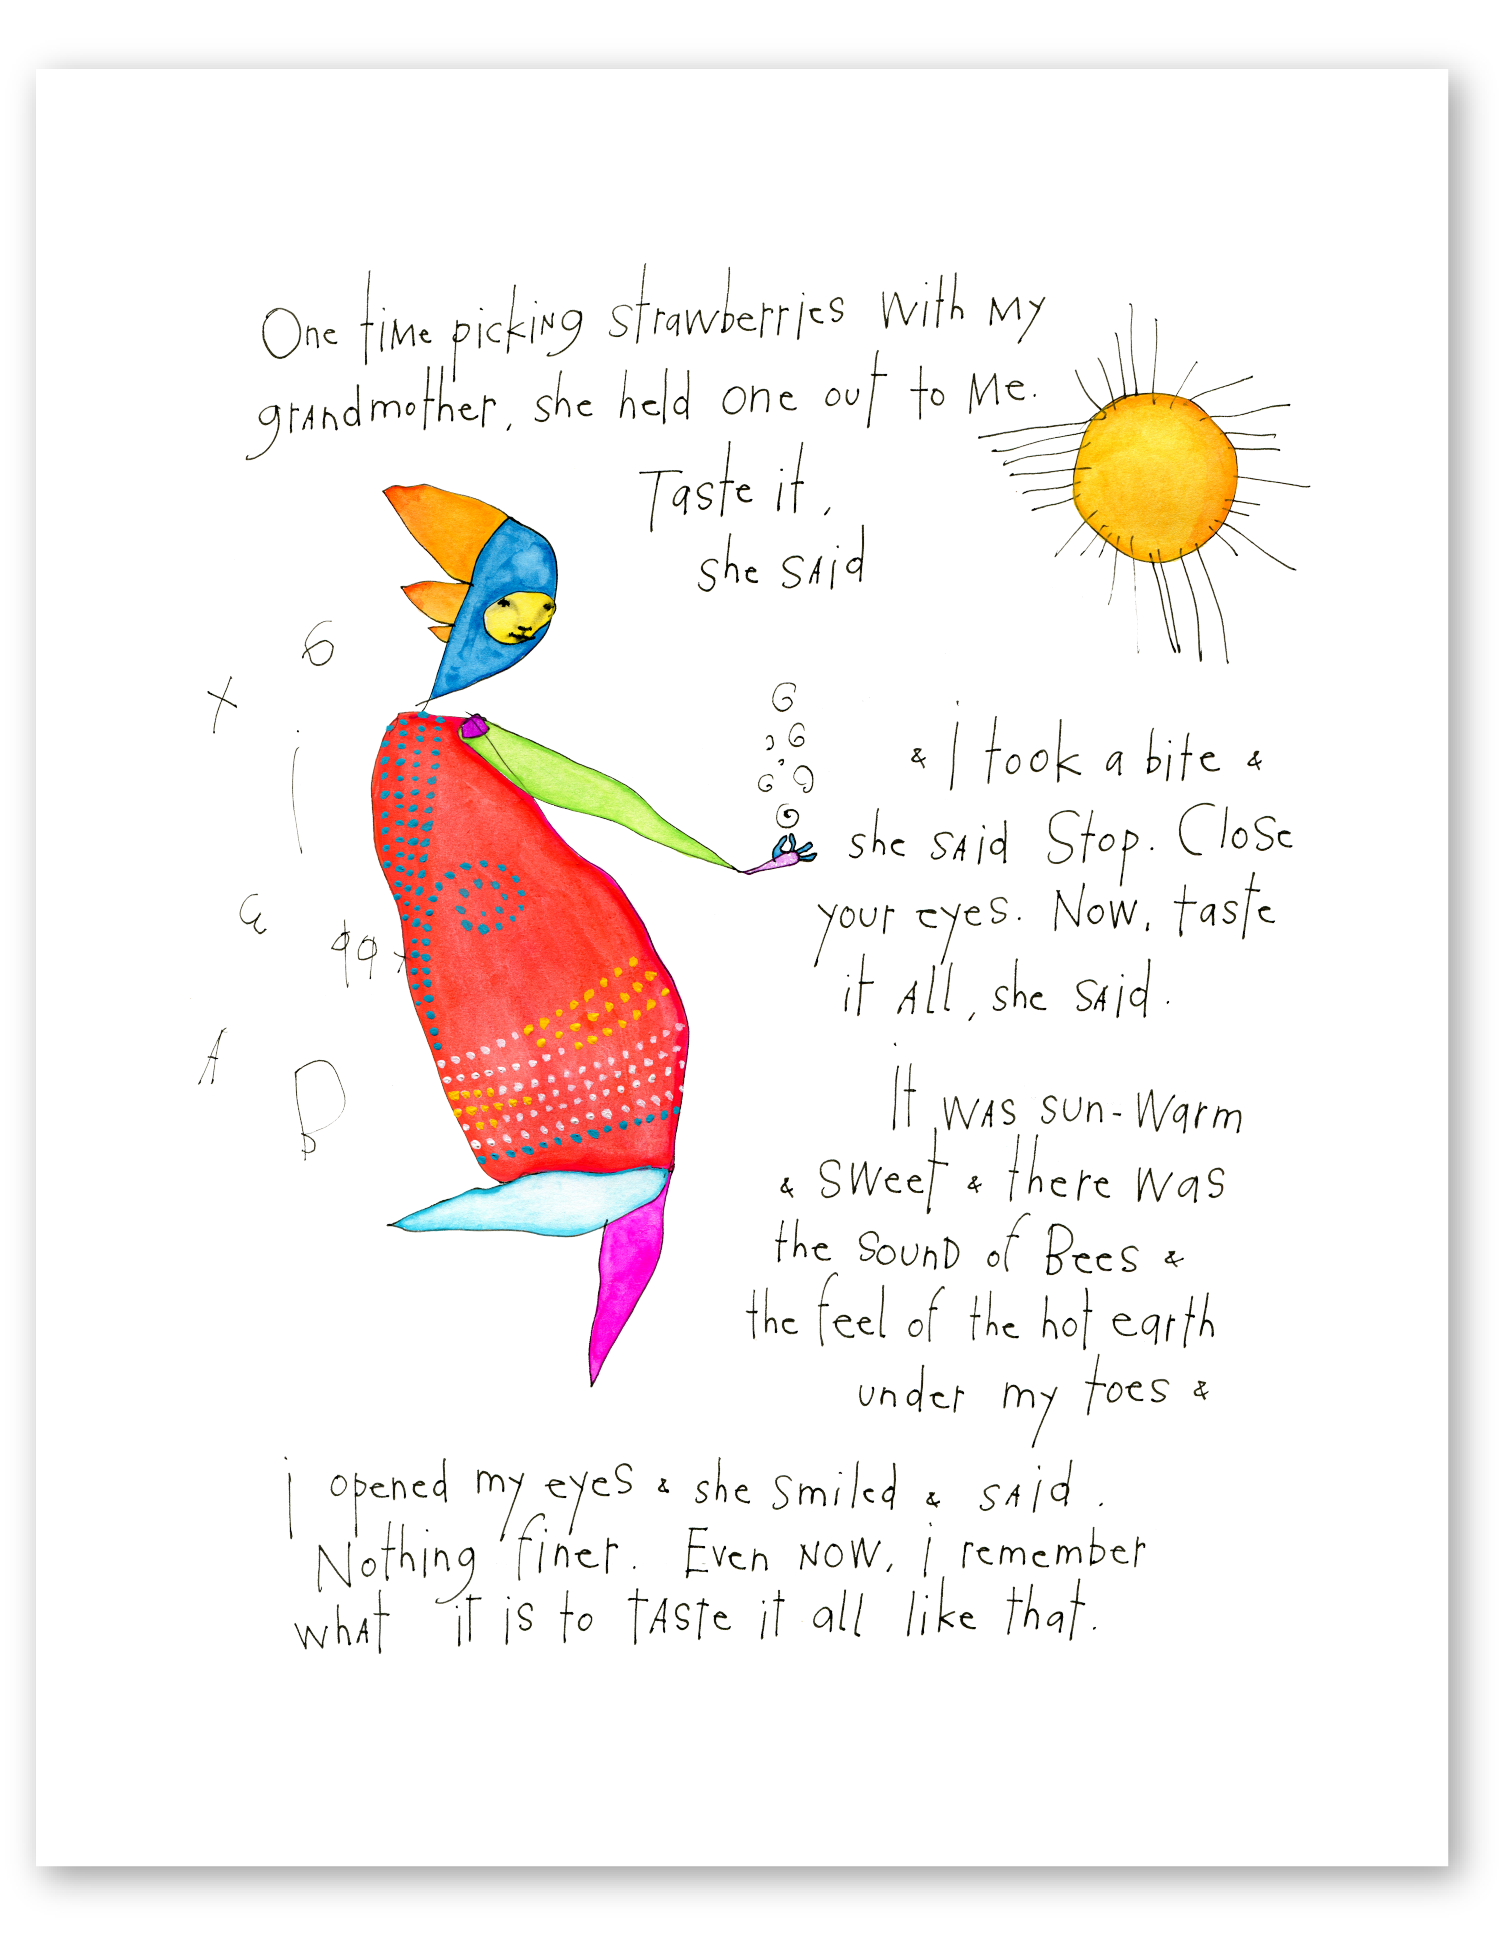 One time picking strawberries with my
grandmother, she held one out to me.
Taste it,
she said
& i took a bite &
she said Stop. Close
your eyes. Now, taste
it all, she said.
It was sun-warm
& sweet & there was
the sound of Bees &
the feel of the hot earth
under my toes &
i opened my eyes & she smiled & said.
Nothing finer. Even now, i remember
what it is to taste it all like that.